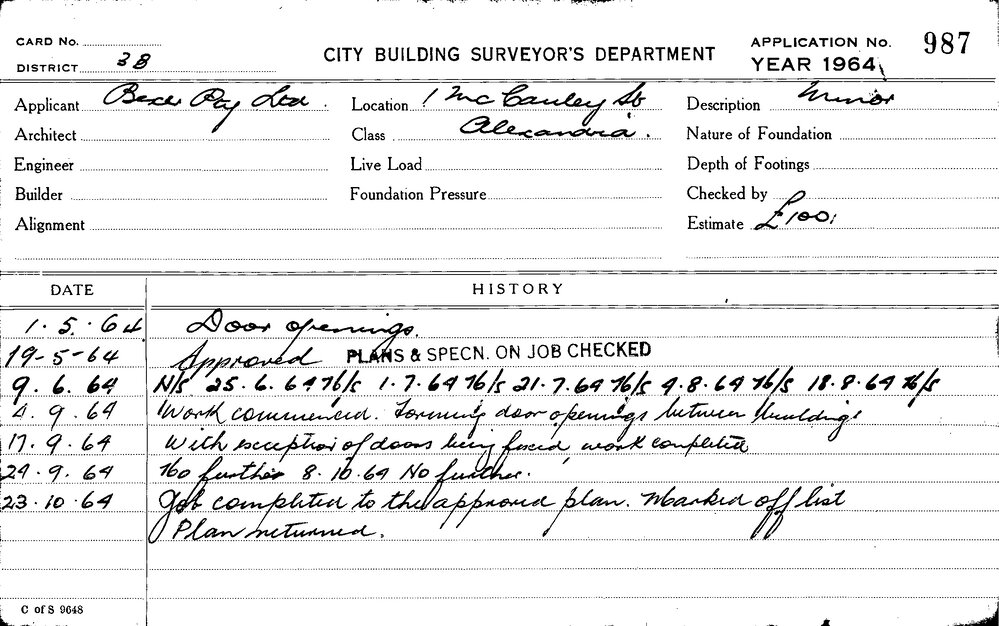 CARD No.
DISTRICT 3B
CITY BUILDING SURVEYOR'S DEPARTMENT
APPLICATION No. 987
YEAR 1964
Applicant Pty Ltd.
Location 1 McCauley St
Alexandria.
Description Minor
Architect
Class
Nature of Foundation
Engineer
Live Load
Depth of Footings
Builder
Foundation Pressure
Checked by
Alignment
Estimate £100.
DATE HISTORY
1.5.64 Door openings.
19-5-64 Approved PLANS & SPECN. ON JOB CHECKED
9.6.64 N/S 25.6.64 N/S 1.7.64 N/S 21.7.64 N/S 4.8.64 N/S 18.8.64 N/S
4.9.64 Work commenced. Forming door openings between buildings
17.9.64 With exception of doors being work completed
29.9.64 No further 8.10.64 No further.
23.10.64 Job completed to the approved plan. Marked off list
Plan returned.
C of S 9648